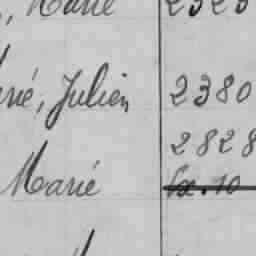 , Marie 2323
rié, Julien 2380
2828
Marié Ex. 10